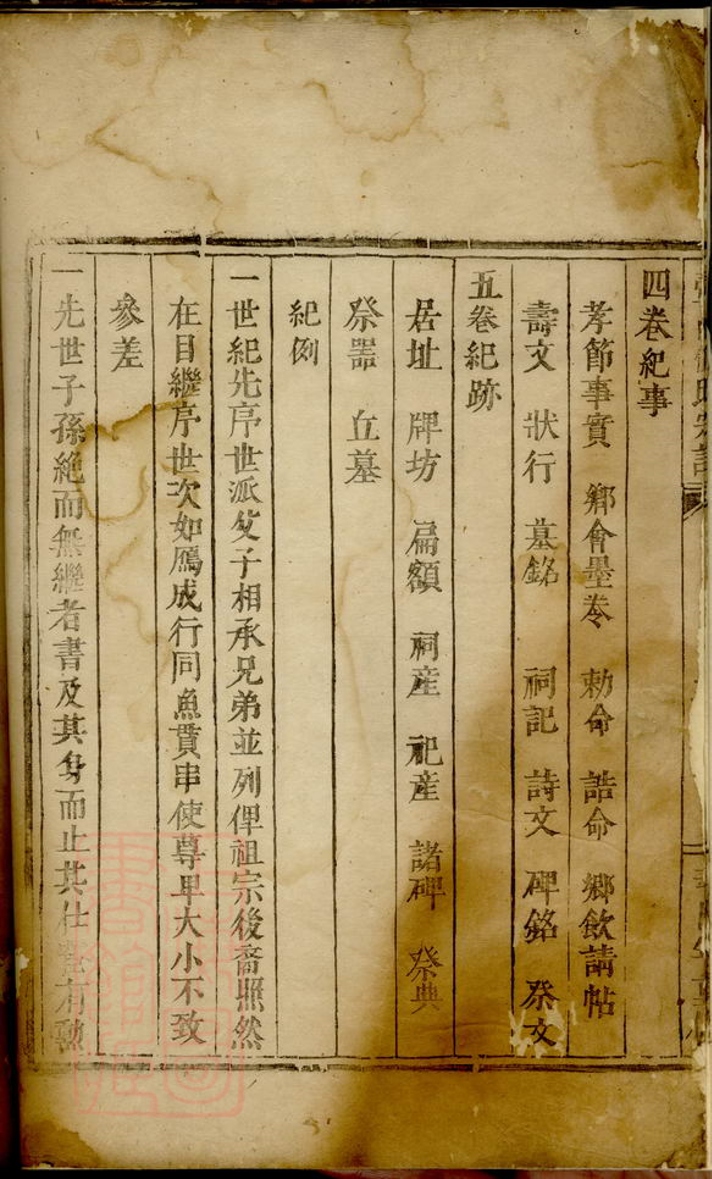 四卷紀事
孝節事實 鄉會墨卷 勅命 誥命 鄉飲請帖
壽文 狀行 墓銘 祠記 詩文 碑銘 祭文
五卷紀跡
居址 牌坊 扁額 祠産 祀産 諸碑 祭典
祭器 丘墓
紀例
一世紀先序世派父子相承兄弟並列俾祖宗後裔照然
在目繼序世次如鴈成行同魚貫串使尊卑大小不致
參差
一先世子孫絶而無繼者書及其身而止其仕 有